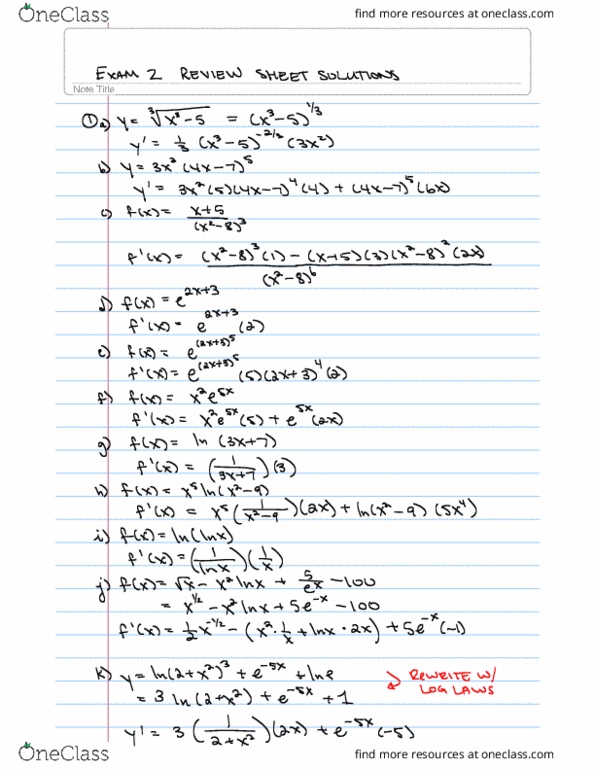 OneClass find more resources at oneclass.com
EXAM 2 REVIEW SHEET SOLUTIONS
Note Title
① a) y = ∛(x³-5) = (x³-5)^(1/3)
y' = 1/3 (x³-5)^(-2/3) (3x²)
b) y = 3x² (4x-7)⁵
y' = 3x² (5)(4x-7)⁴ (4) + (4x-7)⁵ (6x)
c) f(x) = (x+5)/(x²-8)³
f'(x) = ((x²-8)³(1) - (x+5)(3)(x²-8)²(2x))/(x²-8)⁶
d) f(x) = e^(2x+3)
f'(x) = e^(2x+3) (2)
e) f(x) = e^((2x+3)⁵)
f'(x) = e^((2x+3)⁵) (5)(2x+3)⁴(2)
f) f(x) = x²e^(5x)
f'(x) = x²e^(5x)(5) + e^(5x)(2x)
g) f(x) = ln (3x+7)
f'(x) = (1/(3x+7))(3)
h) f(x) = x⁵ln(x²-9)
f'(x) = x⁵(1/(x²-9))(2x) + ln(x²-9) (5x⁴)
i) f(x) = ln(lnx)
f'(x) = (1/lnx)(1/x)
j) f(x) = √x - x²lnx + 5/e^x - 100
= x^(1/2) - x²lnx + 5e^(-x) - 100
f'(x) = 1/2 x^(-1/2) - (x²·1/x + lnx·2x) + 5e^(-x)(-1)
k) y = ln(2+x²)³ + e^(-5x) + lne
REWRITE W/
LOG LAWS
= 3 ln(2+x²) + e^(-5x) + 1
y' = 3 (1/(2+x²))(2x) + e^(-5x)(-5)
OneClass find more resources at oneclass.com